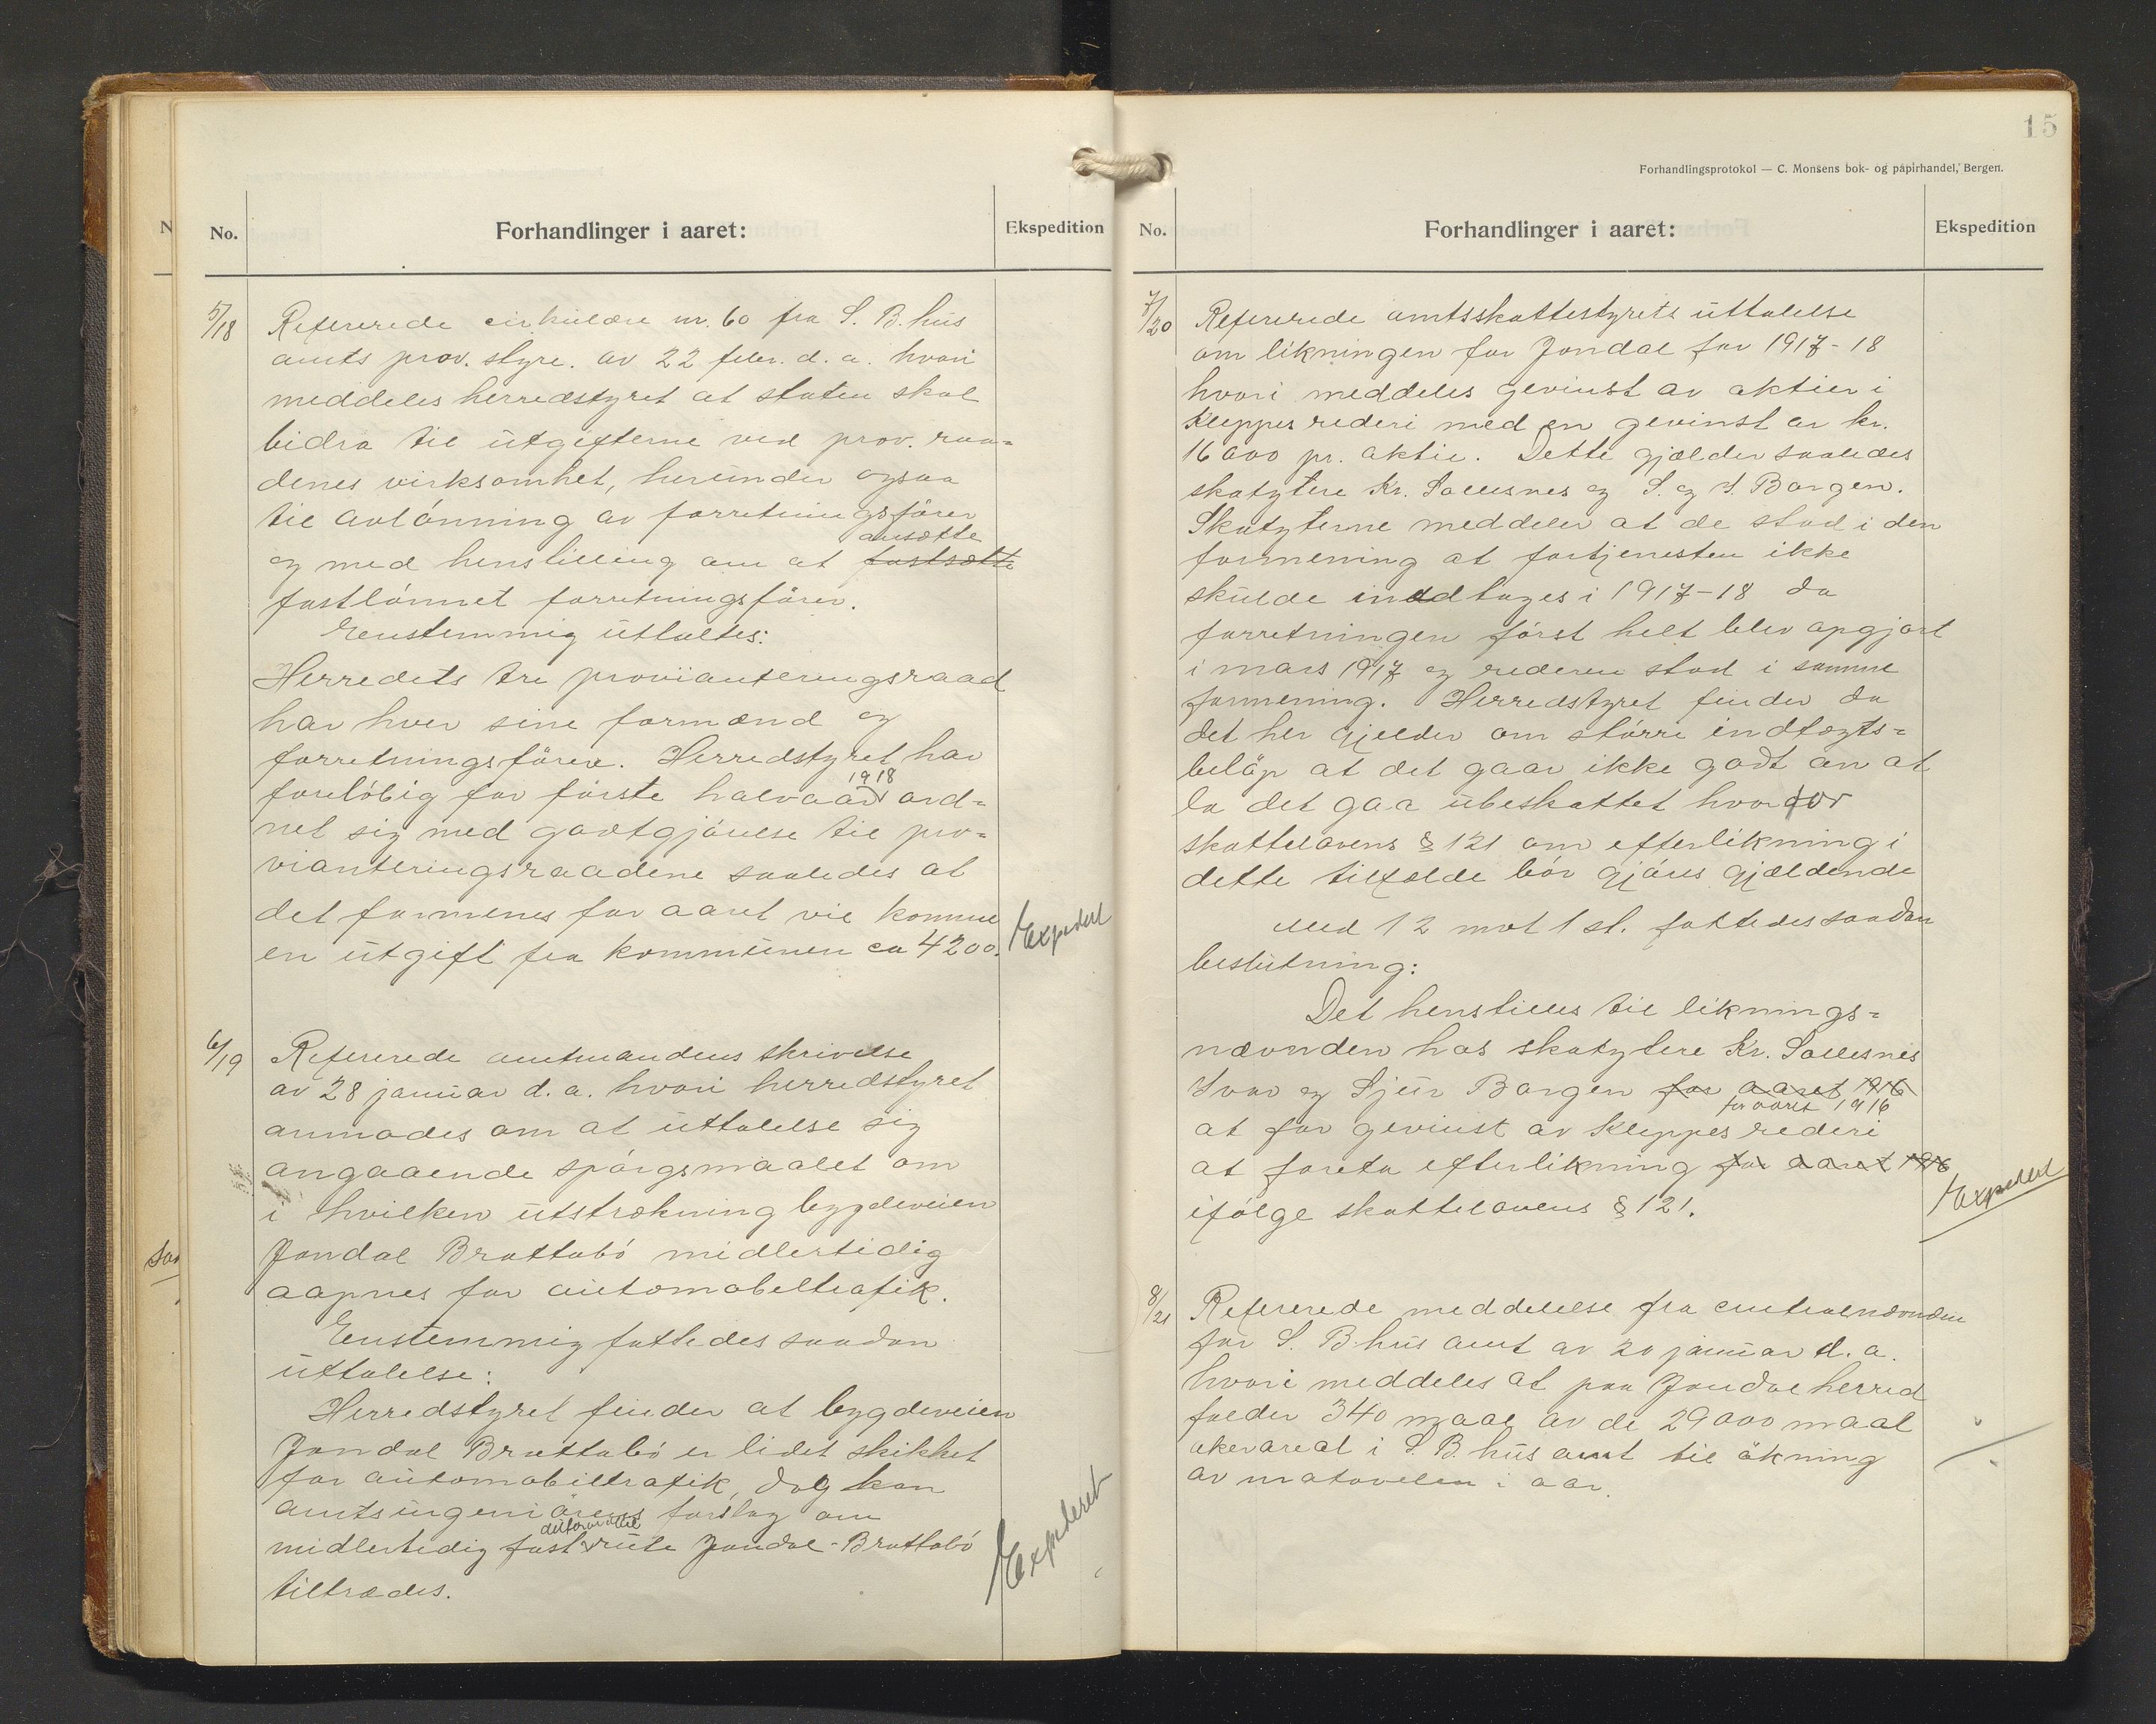 No.
Forhandlinger i aaret:
Ekspedition
5/18
Refererede cirkulære nr. 60 fra S. B. hus
amts prov. styre. av 22 febr. d. a. hvori
meddeles herredstyret at staten skal
bidra til utgifterne ved prov. raa=
denes virksomhet, herunder ogsaa
til avlønning av forretningsfører
ansætte
og med henstilling om at fastsætte
fastlønnet forretningsfører.
Enstemmig uttaltes:
Herredets tre provianteringsraad
har hver sine formænd og
forretningsfører. Herredstyret har
1918
foreløbig for første halvaar ord=
net sig med godtgjørelse til pro=
vianteringsraadene saaledes at
det formenes for aaret vil komme
en utgift fra kommunen ca 4200.
Expedert
6/19
Refererede amtmandens skrivelse
av 28 januar d. a. hvori herredstyret
anmodes om at uttalelse sig
angaaende spørgsmaalet om
i hvilken utstrækning bygdeveien
Jondal Brattabø midlertidig
aapnes for automobeltrafik.
Enstemmig fattedes saadan
uttalelse:
Herredstyret finder at bygdeveien
Jondal Brattabø er lidet skikket
for automobiltrafik, dog kan
amtsingeniørens forslag om
midlertidig fast rute Jondal-Brattabø
tiltrædes.
Expederet
15
Forhandlingsprotokol — C. Monsens bok- og papirhandel, Bergen.
No.
Forhandlinger i aaret:
Ekspedition
7/20
Refererede amtsskattestyrets uttalelse
om likningen for Jondal for 1917-18
hvori meddeles gevinst av aktier i
Kleppes rederi med en gevinst av kr.
16000 pr. aktie. Dette gjælder saaledes
skatytere Kr. Sallesnes og S. og I. Bargen.
Skatyterne meddeler at de stod i den
formening at fortjenesten ikke
skulde indtages i 1917-18 da
forretningen først helt blev opgjort
i mars 1917 og rederen stod i samme
formening. Herredstyret finder da
det her gjelder om større indtægts=
beløp at det gaar ikke godt an at
la det gaa ubeskattet hvorfor
skattelovens § 121 om efterlikning i
dette tilfælde bør gjøres gjældende
Med 12 mot 1 st. fattedes saadan
beslutning:
Det henstilles til liknings=
nævnden hos skatytere Kr. Sallesnes
Ivar og Sjur Bargen for aaret 1916
for aaret 1916
at for gevinst av Kleppes rederi
at foreta efterlikning for aaret 1916
ifølge skattelovens § 121.
Expedert
8/21
Refererede meddelelse fra centralnævnden
for S. B. hus amt av 20 januar d. a.
hvori meddeles at paa Jondal herred
falder 340 maal av de 29000 maal
akerareal i S. B. hus amt til økning
av matavelen i aar.